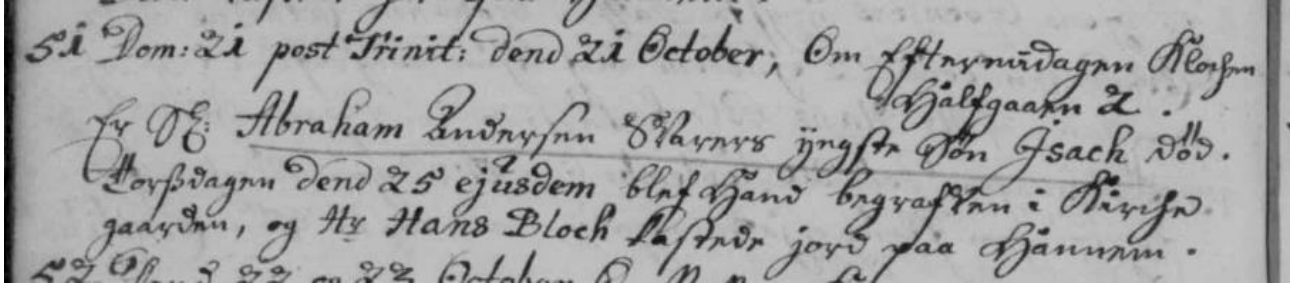 51 Dom: 21 post Trinit: dend 21 October, Om Eftermidagen Klochen
Halfgaaen 2.
Er Sl: Abraham Andersen Svarers yngste Søn Isach död.
Torßdagen dend 25 ejusdem blef Hand begrafven i Kirche
gaarden, og Hr Hans Bloch kastede jord paa Hannem.
52 Dend 22 og 23 October